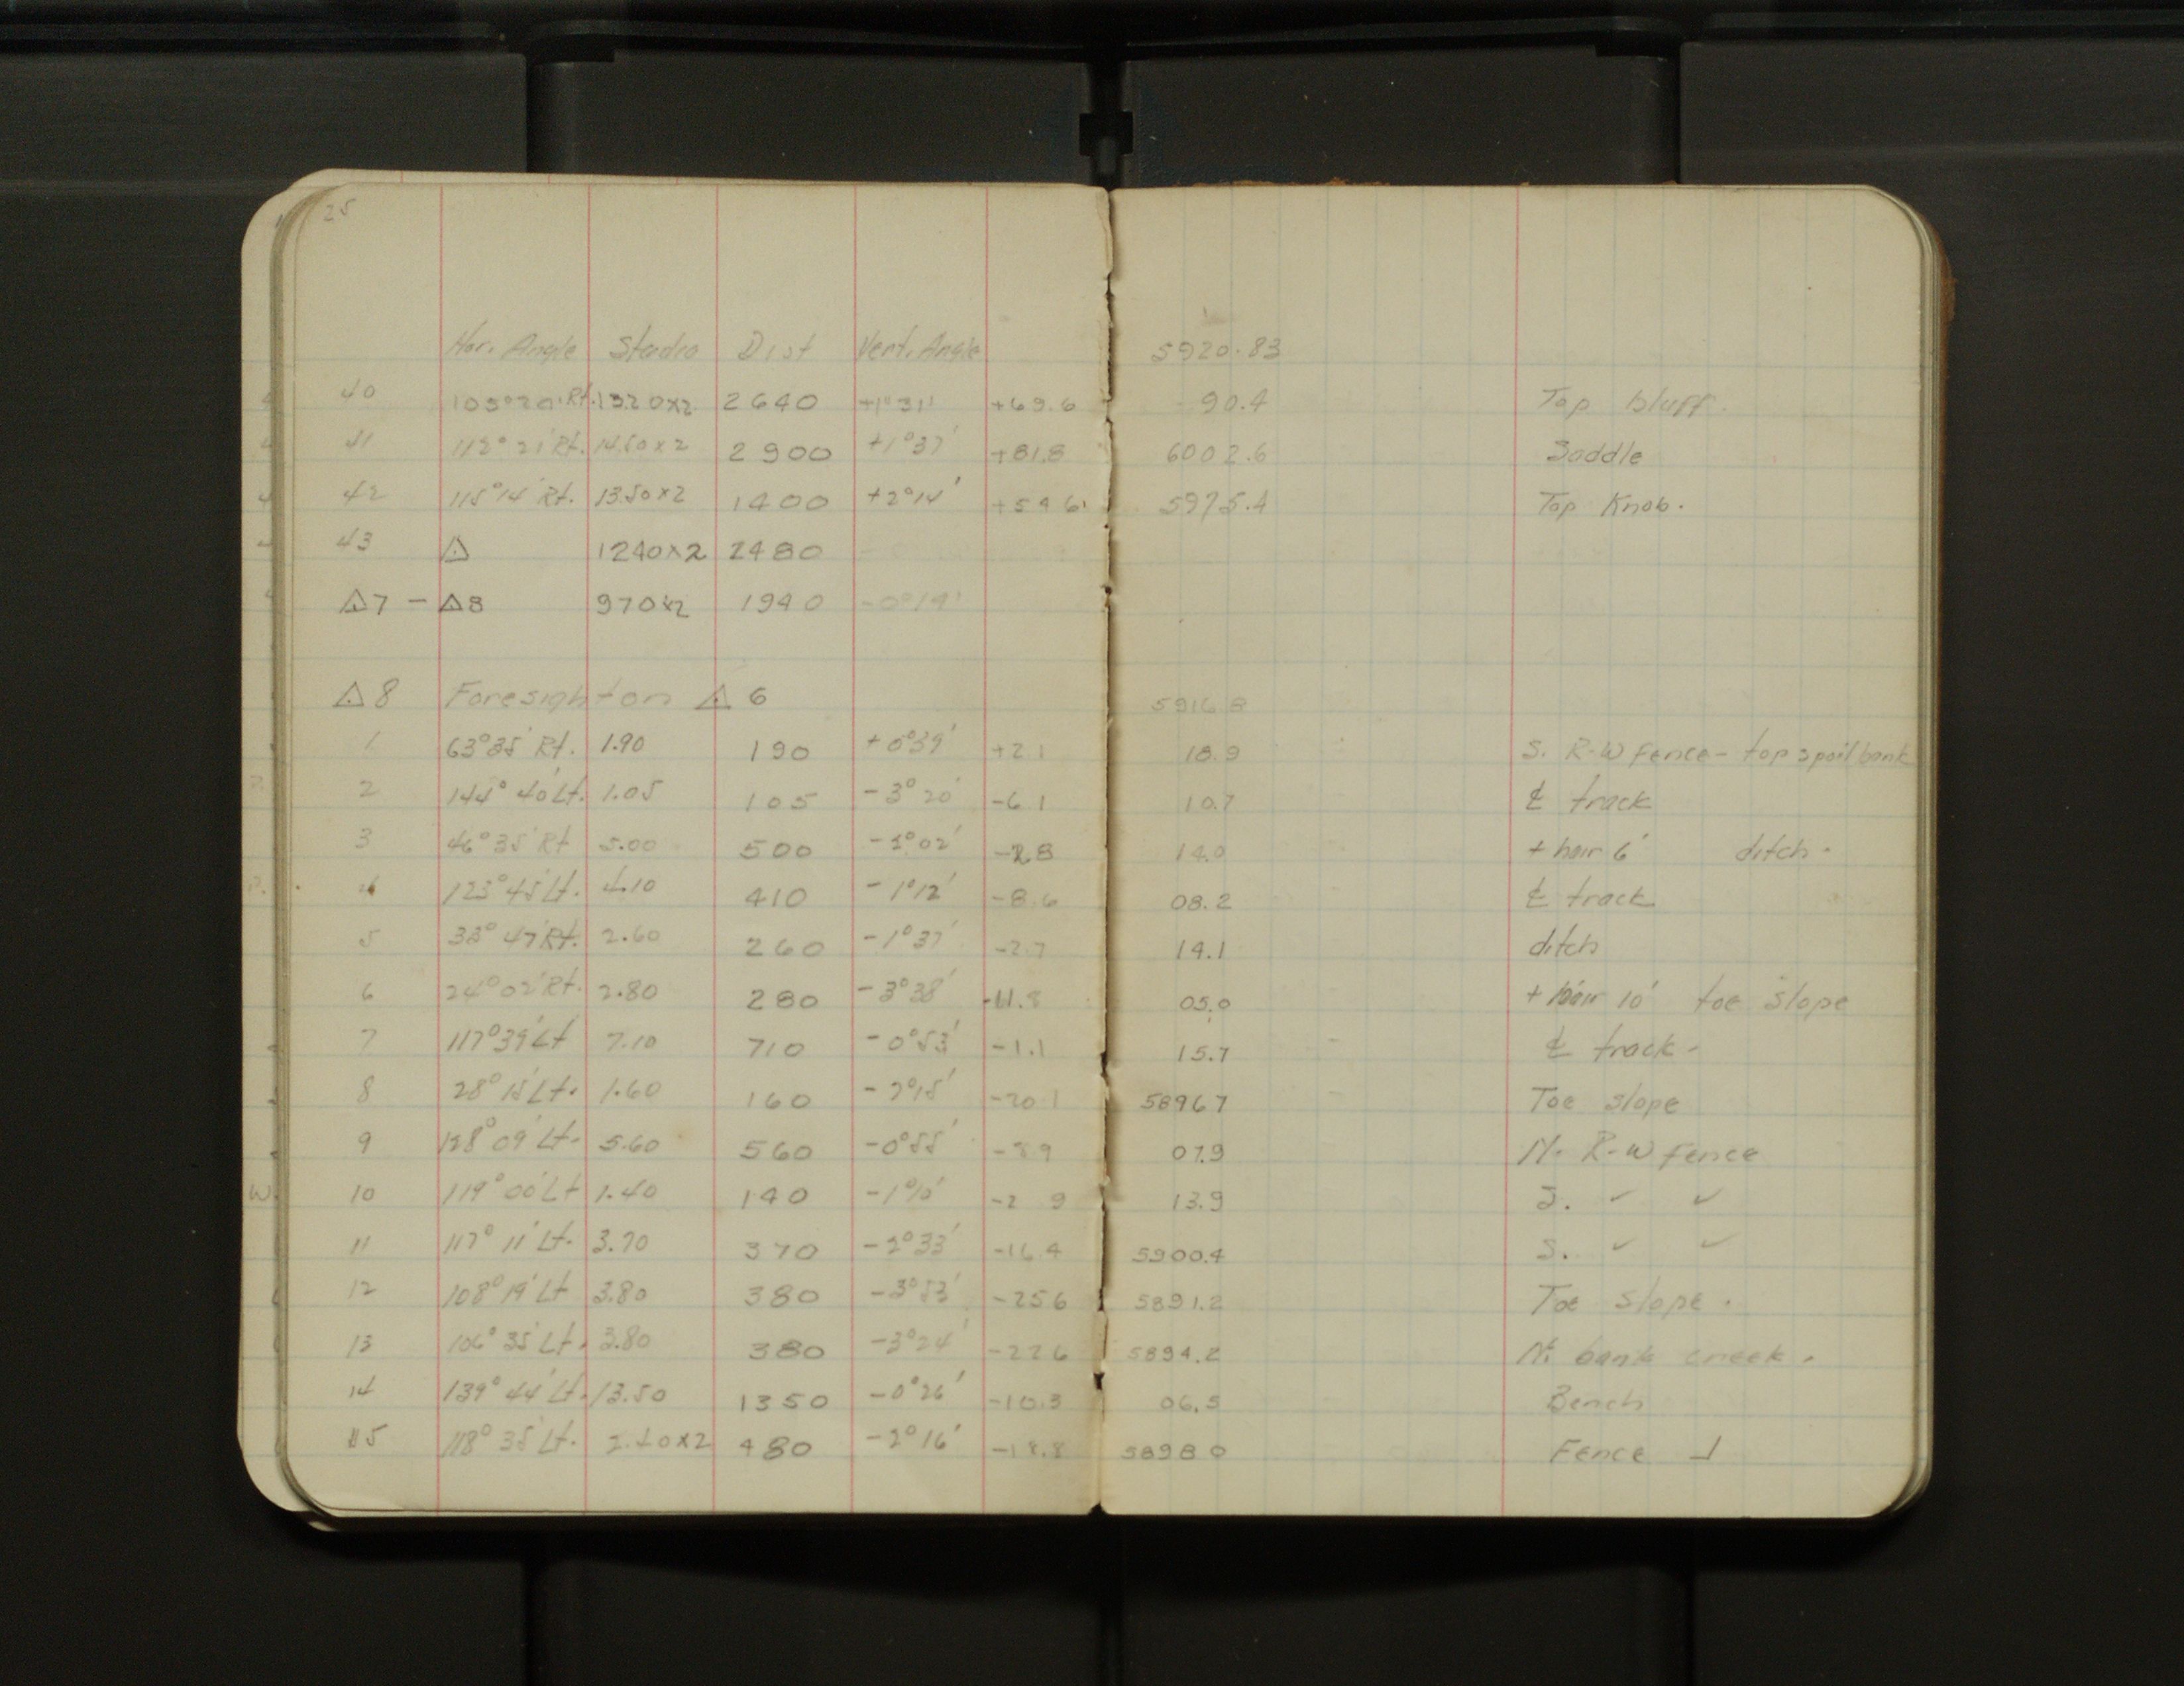 25
Hor. Angle Stadia Dist Vert. Angle 5920.83
40 103°20' Rt. 13.20x2 2640 +1°31' +69.6 90.4 Top Bluff.
41 112°21' Rt. 14.50x2 2900 +1°37' +81.8 6002.6 Saddle
42 115°14' Rt. 13.50x2 1400 +2°14' +54.6 5975.4 Top Knob.
43 △ 1240x2 2480
△7 - △8 970x2 1940 -0°19'
△8 Foresight on △6 5916.8
1 63°35' Rt. 1.90 190 +0°39' +2.1 18.9 S. R-W fence - top spoil bank
2 144°40' Lt. 1.05 105 -3°20' -6.1 10.7 ℄ track
3 46°35' Rt 5.00 500 -1°02' -2.8 14.0 + hair 6' ditch.
4 123°45' Lt. 4.10 410 -1°12' -8.6 08.2 ℄ track
5 33°47' Rt. 2.60 260 -1°37' -2.7 14.1 ditch
6 24°02' Rt. 2.80 280 -3°38' -11.8 05.0 + hair 10' toe slope
7 117°39' Lt 7.10 710 -0°53' -1.1 15.7 ℄ track -
8 28°15' Lt. 1.60 160 -7°15' -20.1 5896.7 Toe slope
9 128°09' Lt. 5.60 560 -0°55' -8.9 07.9 N. R-W fence
10 119°00' Lt 1.40 140 -1°10' -2.9 13.9 S. ✓ ✓
11 117°11' Lt. 3.70 370 -2°33' -16.4 5900.4 S. ✓ ✓
12 108°19' Lt 3.80 380 -3°53' -25.6 5891.2 Toe slope.
13 106°35' Lt. 3.80 380 -3°24' -22.6 5894.2 N. bank creek.
14 139°44' Lt. 13.50 1350 -0°26' -10.3 06.5 Bench
15 118°35' Lt. 2.40x2 480 -2°16' -18.8 5898.0 Fence ┘